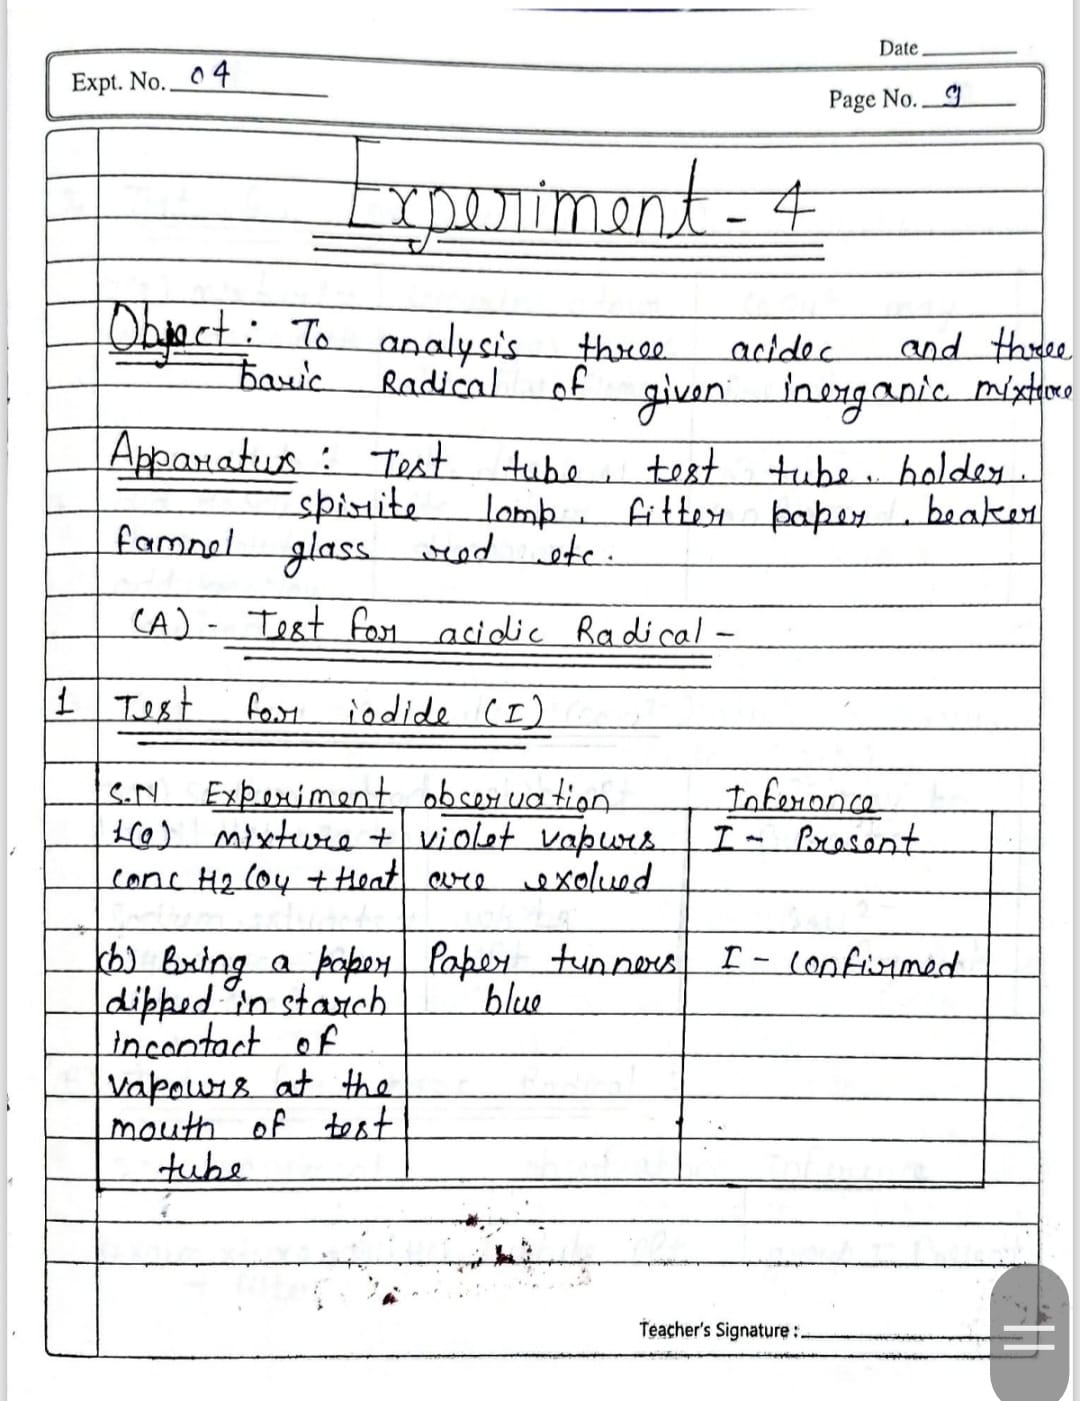 Date
Expt. No. 04
Page No. 9
Experiment - 4
Object : To analysis three acidec and three
baric Radical of given inorganic mixture
Apparatus : Test tube, test tube. holder.
spirite lomp. fitter paper. beaker
famnel glass rod etc.
(A) - Test for acidic Radical -
1 Test for iodide (I)
S.N. Experiment observation Inference
1(a) mixture + violet vapurs I - Present
conc H2 SO4 + Heat are exolued
(b) Bring a paper Paper tunners I - confirmed
dipped in starch blue
incontact of
vapours at the
mouth of test
tube
Teacher's Signature :